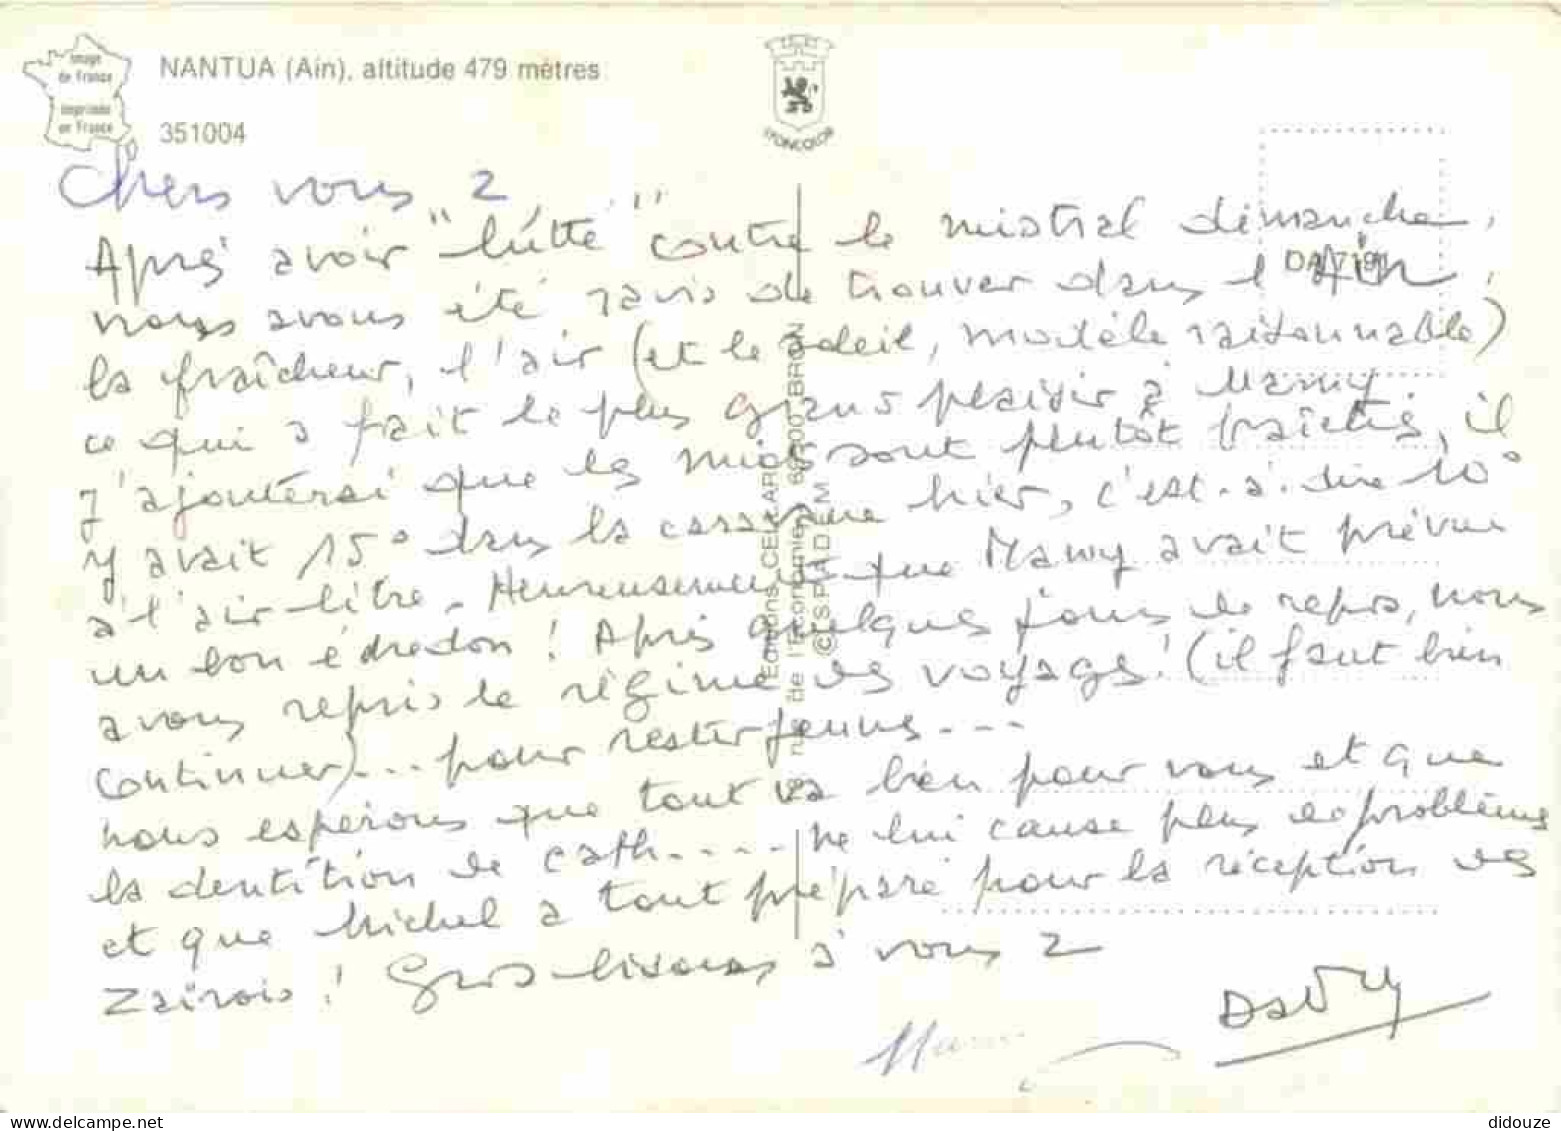 Image
de France
Imprimée
en France
NANTUA (Ain), altitude 479 mètres
351004
LYONCOLOR
Chers vous 2
Après avoir "lutté" contre le mistral dimanche,
nous avons été ravis de trouver dans l'Ain,
la fraîcheur, l'air (et le soleil, modèle raisonnable)
ce qui a fait le plus grand plaisir à Mamy
J'ajouterai que les nuits sont plutôt fraîches, il
y avait 15° dans la caravane hier, c'est-à-dire 10°
à l'air libre. Heureusement que Mamy avait prévu
un bon édredon ! Après quelques jours de repos, nous
avons repris le régime des voyages ! (il faut bien
continuer)... pour rester jeunes...
nous espérons que tout va bien pour vous et que
la dentition de Cath.... ne lui cause plus de problèmes
et que Michel a tout préparé pour la réception des
Zaïrois ! Gros bisous à vous 2
Editions CELLARD
rue de l'Economie 69500 BRON
© SPADEM
didouze